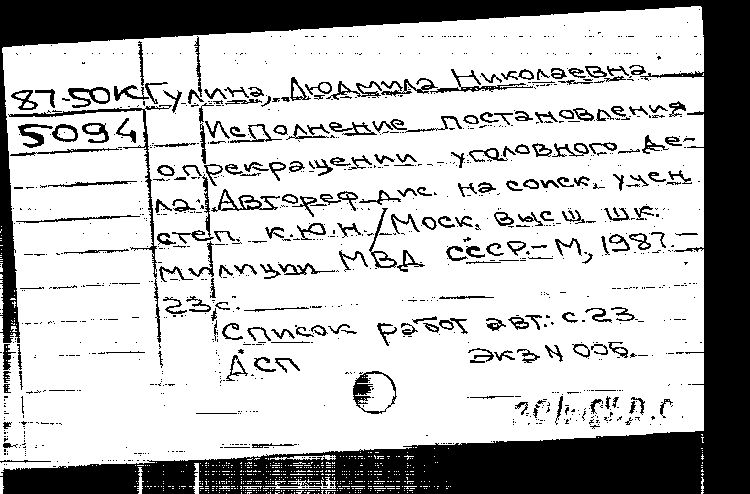 87-50К Гулина, Людмила Николаевна
5094 Исполнение постановления
о прекращении уголовного де-
ла: Автореф. дис. на соиск. учен
степ. к.ю.н. / Моск. высш шк.
милиции МВД СССР.- М, 1987.-
23с.
Список работ авт.: с.23
ДСП Экз N 005.